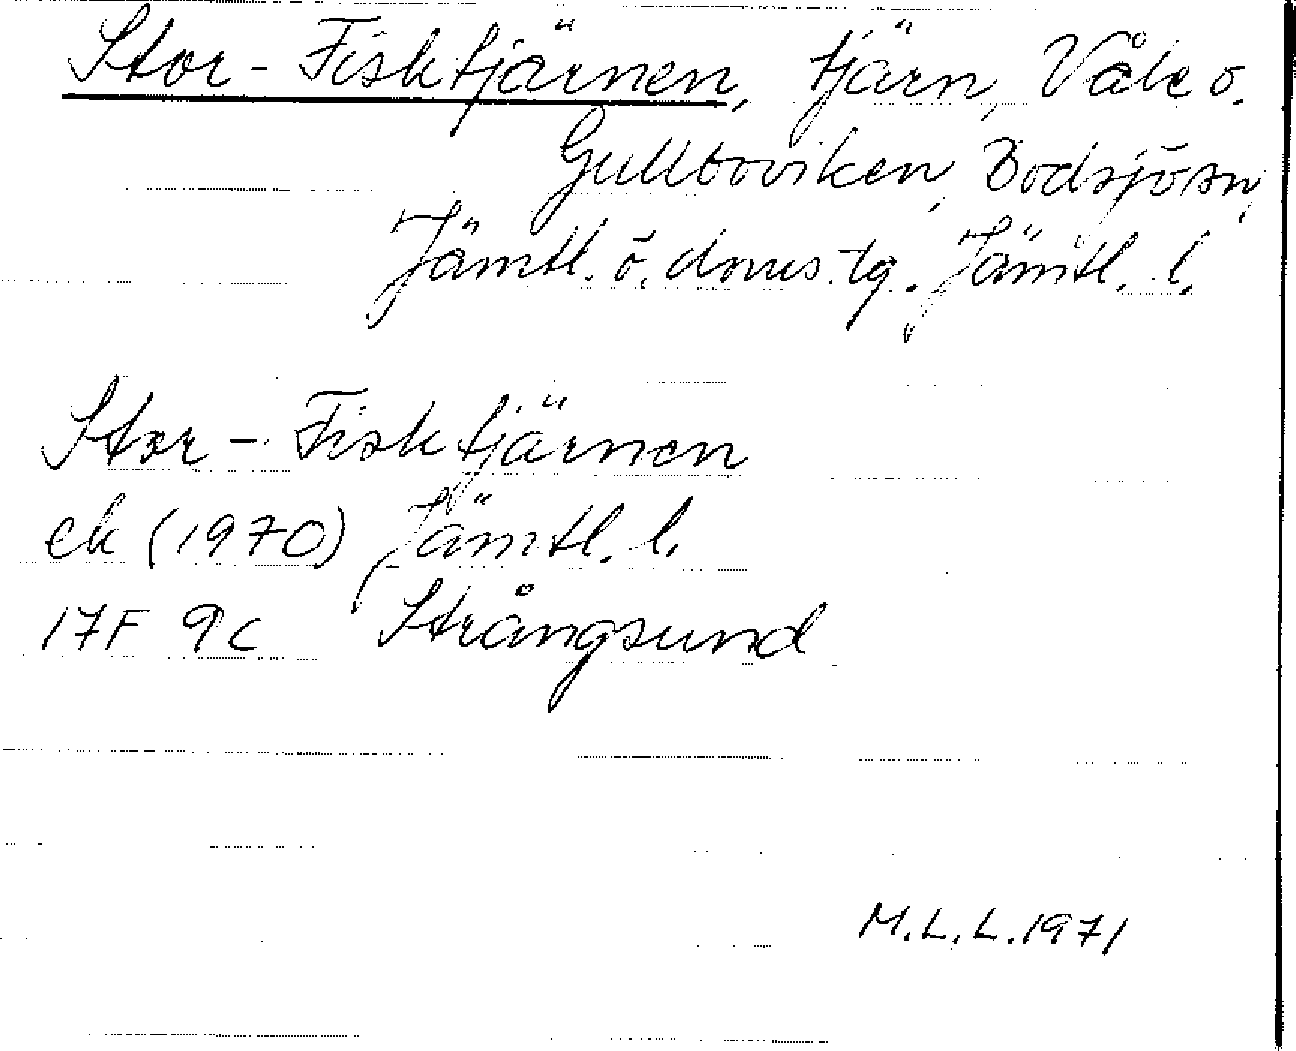 Stor-Fisktjärnen, tjärn, Våle o.
Gullboviken, Bodsjö sn,
Jämtl. ö. doms.tg. Jämtl. l.
Stor-Fisktjärnen
ek (1970) Jämtl. l.
17F 9c Strångsund
M.L.L.1971